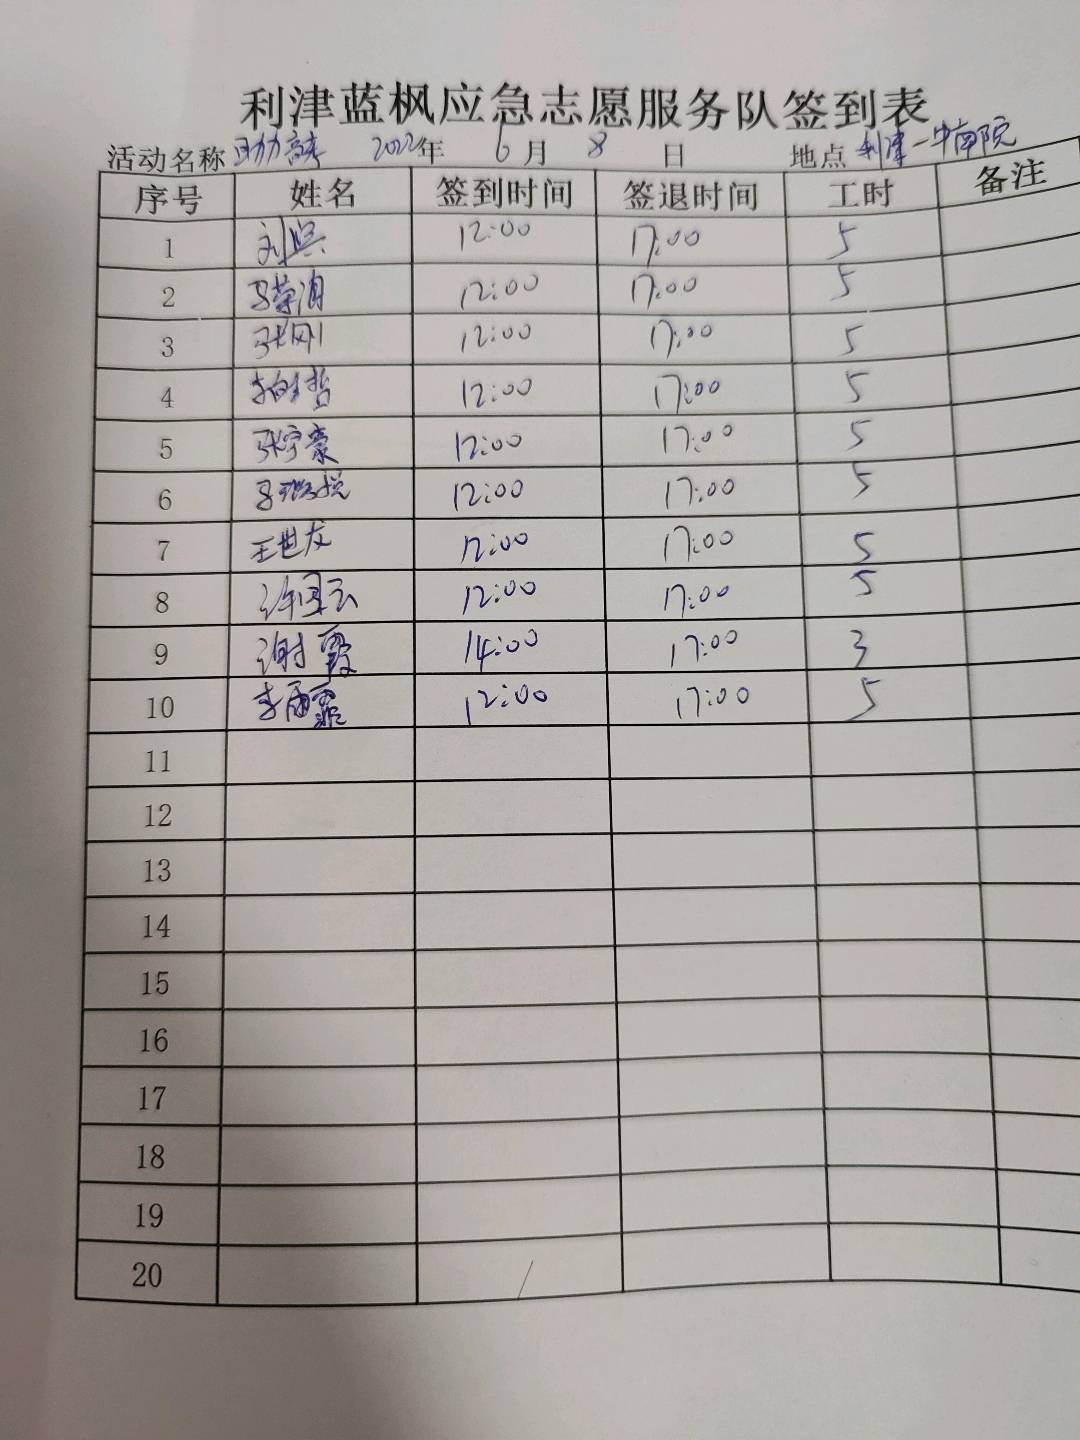 利津蓝枫应急志愿服务队签到表
活动名称 助力高考 2022年 6月 8日 地点 利津一中南院
序号 姓名 签到时间 签退时间 工时 备注
1 刘 12:00 17:00 5
2 马荣 12:00 17:00 5
3 张刚 12:00 17:00 5
4 12:00 17:00 5
5 张宇豪 12:00 17:00 5
6 12:00 17:00 5
7 王世友 12:00 17:00 5
8 许国云 12:00 17:00 5
9 谢霞 14:00 17:00 3
10 李雨霏 12:00 17:00 5
11
12
13
14
15
16
17
18
19
20